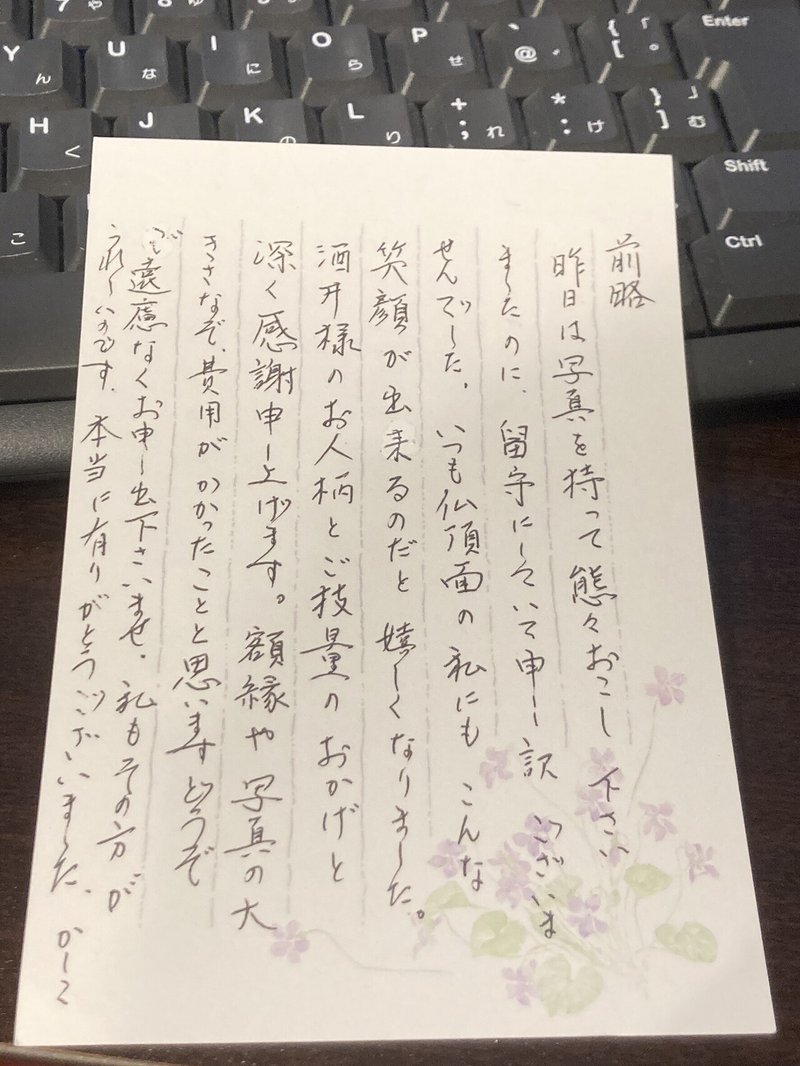 7 や
Y ん
U な
I に
O ら
P せ
` @ ゛
{ 「 [ ゜
Enter
H く
J
K の
L り
+ ; れ
* : け
} 」 ] む
Shift
Ctrl
こ
前略
昨日は写真を持って態々おこし下さい
ましたのに、留守にしていて申し訳ございま
せんでした。いつも仏頂面の私にもこんな
笑顔が出来るのだと嬉しくなりました。
酒井様のお人柄とご技量のおかげと
深く感謝申し上げます。額縁や写真の大
きさなぞ、費用がかかったことと思います どうぞ
ご遠慮なくお申し出下さいませ。私もその方が
うれしいのです。本当に有りがとうございました、かしこ